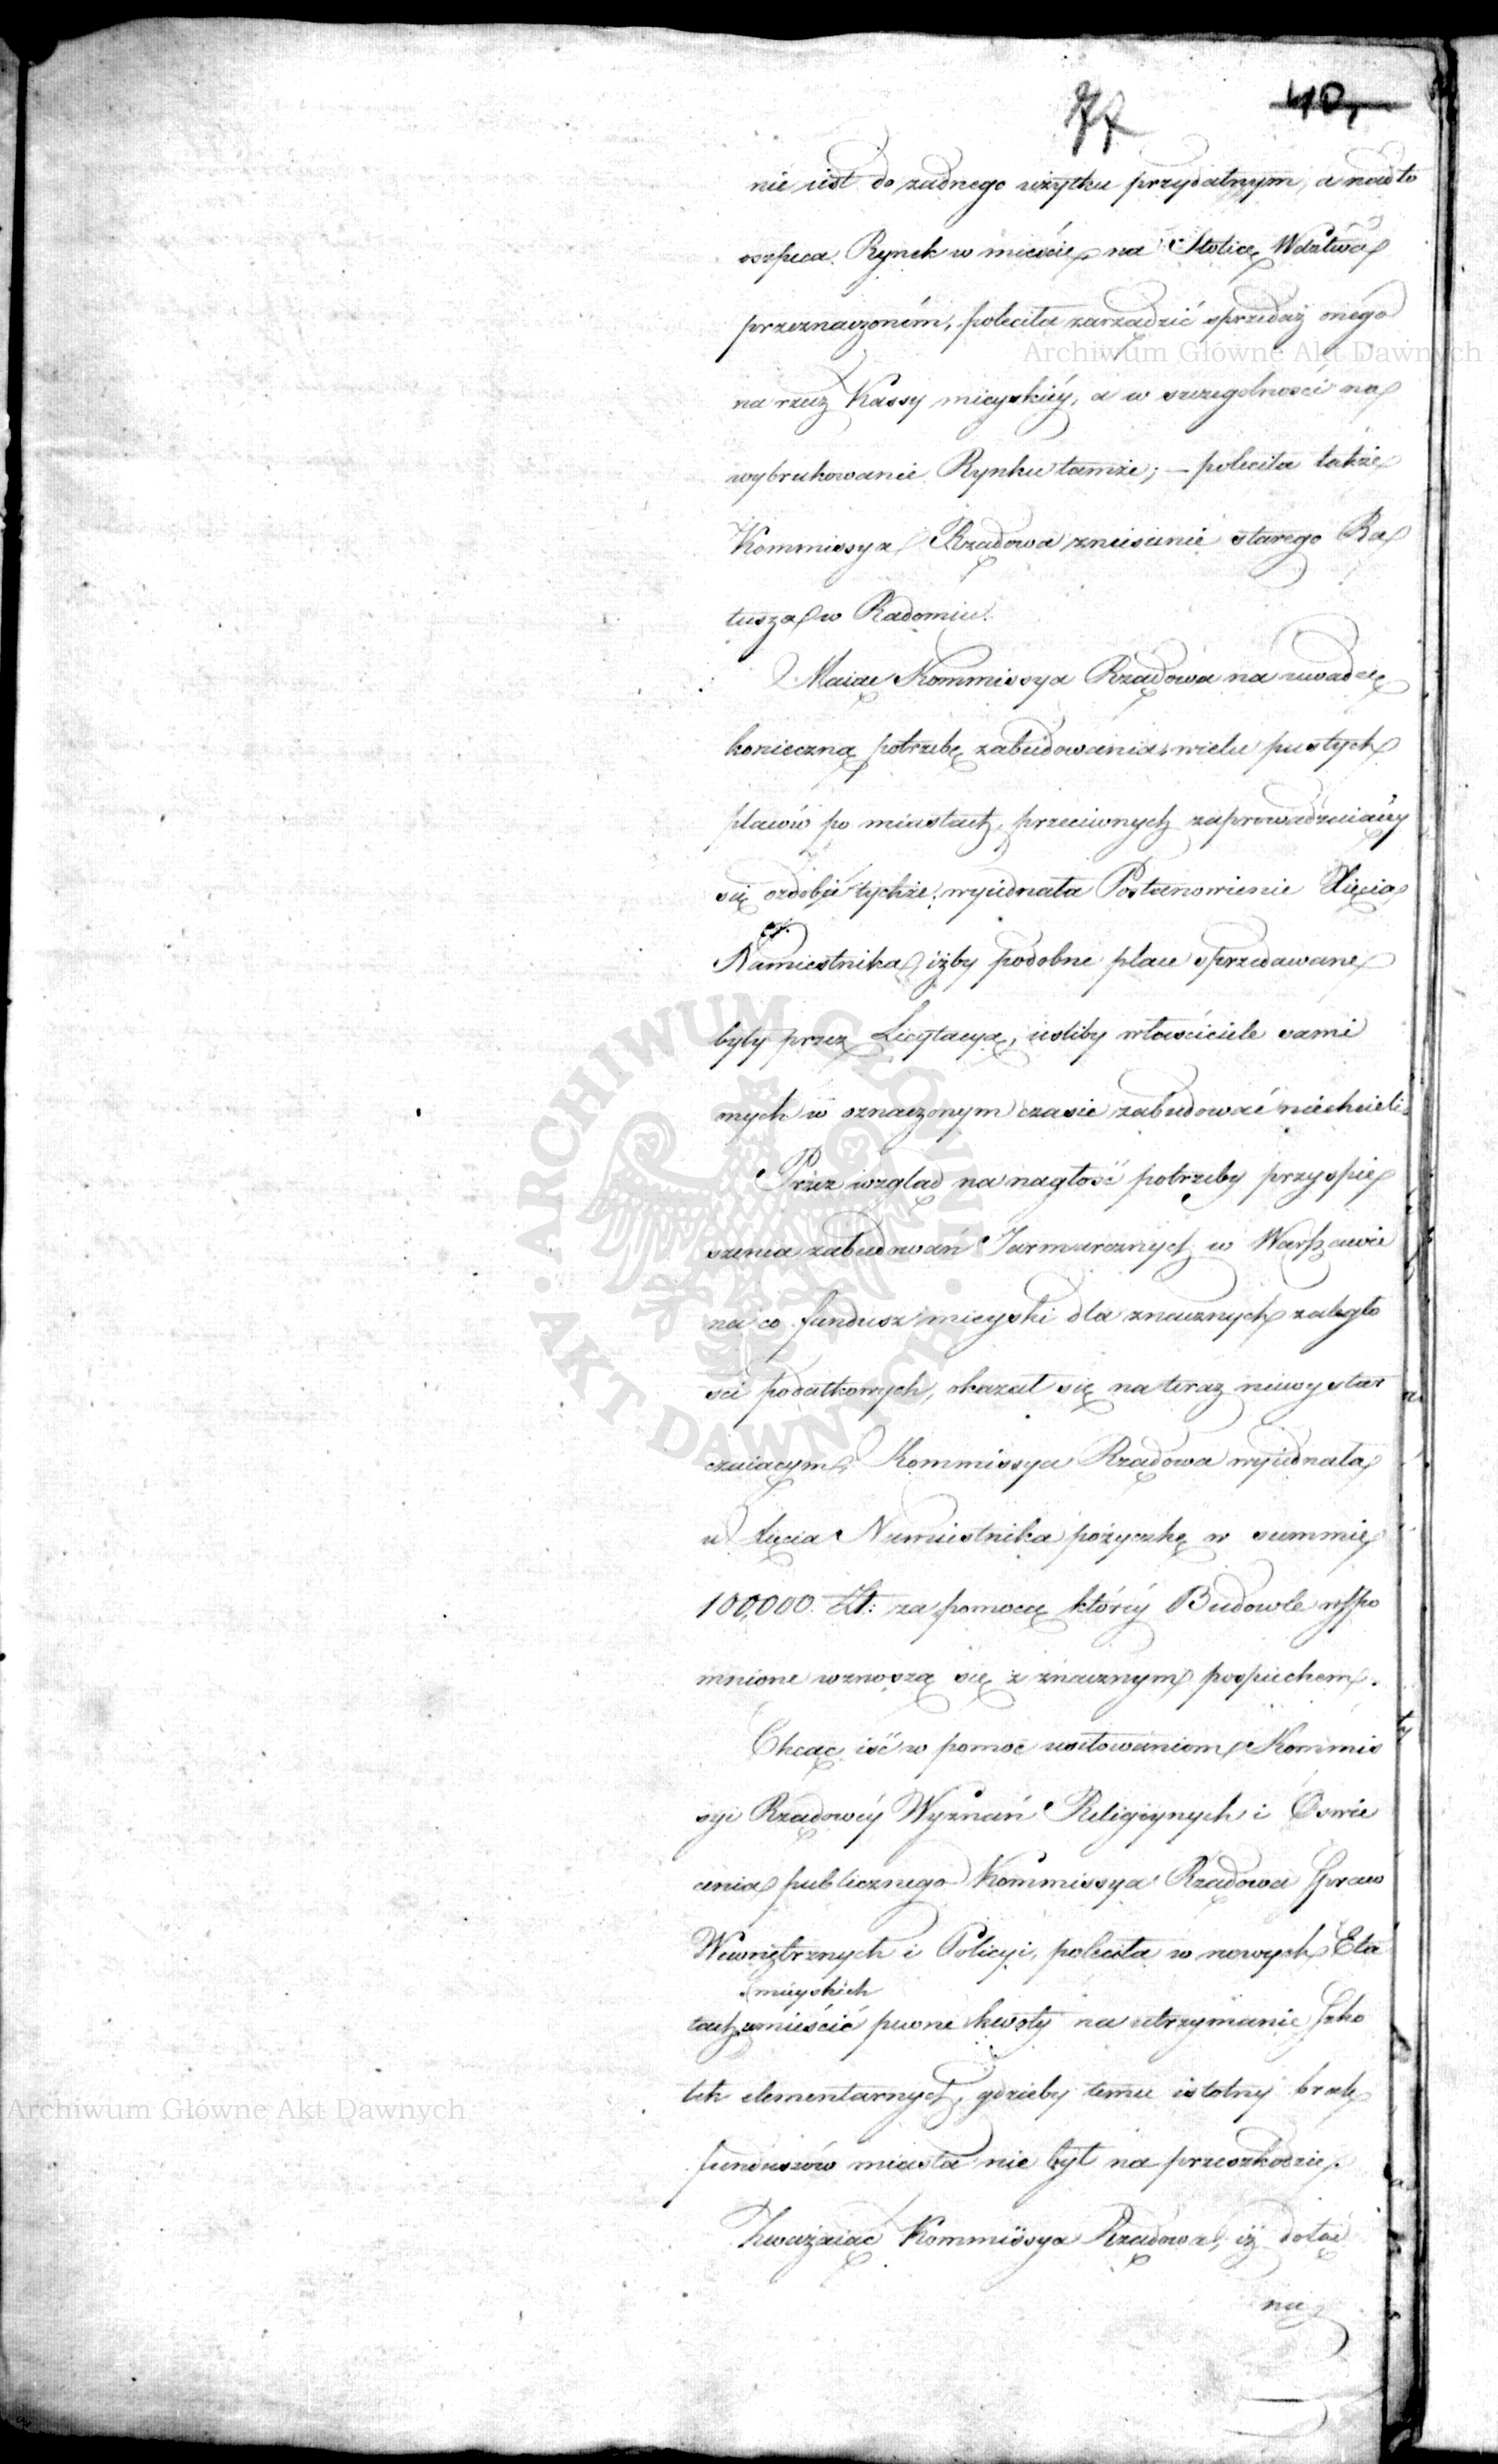 77 40,
nie iest do żadnego użytku przydatnym, a nadto
oszpeca Rynek w mieście na Stolicę Wdztwa
przeznaczoném, poleciła zarządzić sprzedaż onégo
na rzecz Kassy mieyskiéy, a w szczegolności na
wybrukowanie Rynku tamże; – poleciła także
Kommissya Rządowa zniesienie starego Ra
tusza w Radomiu.
Maiąc Kommissya Rządowa na uwadze
konieczną potrzebę zabudowania wielu pustych
placów po miastach, przeciwnych zaprowadzaiącéy
się ozdobie tychże, wyiednała Postanowienie Xięcia
Namiestnika, iżby podobne place sprzedawane
były przez Licytacyą, iesliby właściciele sami
onych w oznaczonym czasie zabudować niechcieli.
Przez wzgląd na nagłość potrzeby przyspie
szenia zabudowań Jarmarcznych w Warszawie
na co fundusz mieyski dla znacznych zaległo
sci podatkowych, okazał się na teraz niewystar
czaiącym, Kommissya Rządowa wyiednała
u Xięcia Namiestnika pożyczkę w summie
100,000 Zł: za pomocą któréy Budowle wspo
mnione wznoszą się z znacznym pospiechem.
Chcąc iść w pomoc usiłowaniom Kommis
syi Rządowéy Wyznań Religiynych i Oswie
cenia publicznego Kommissya Rządowa Spraw
Wewnętrznych i Policyi, poleciła w nowych Eta
mieyskich
tach umieścić pewne kwoty na utrzymanie Szko
łek elementarnych, gdzieby temu istotny brak
funduszów miasta nie był na przeszkodzie.
Zważaiąc Kommissya Rządowa, iż dotąd
na
Archiwum Główne Akt Dawnych
ARCHIWUM GŁÓWNE AKT DAWNYCH
Archiwum Główne Akt Dawnych